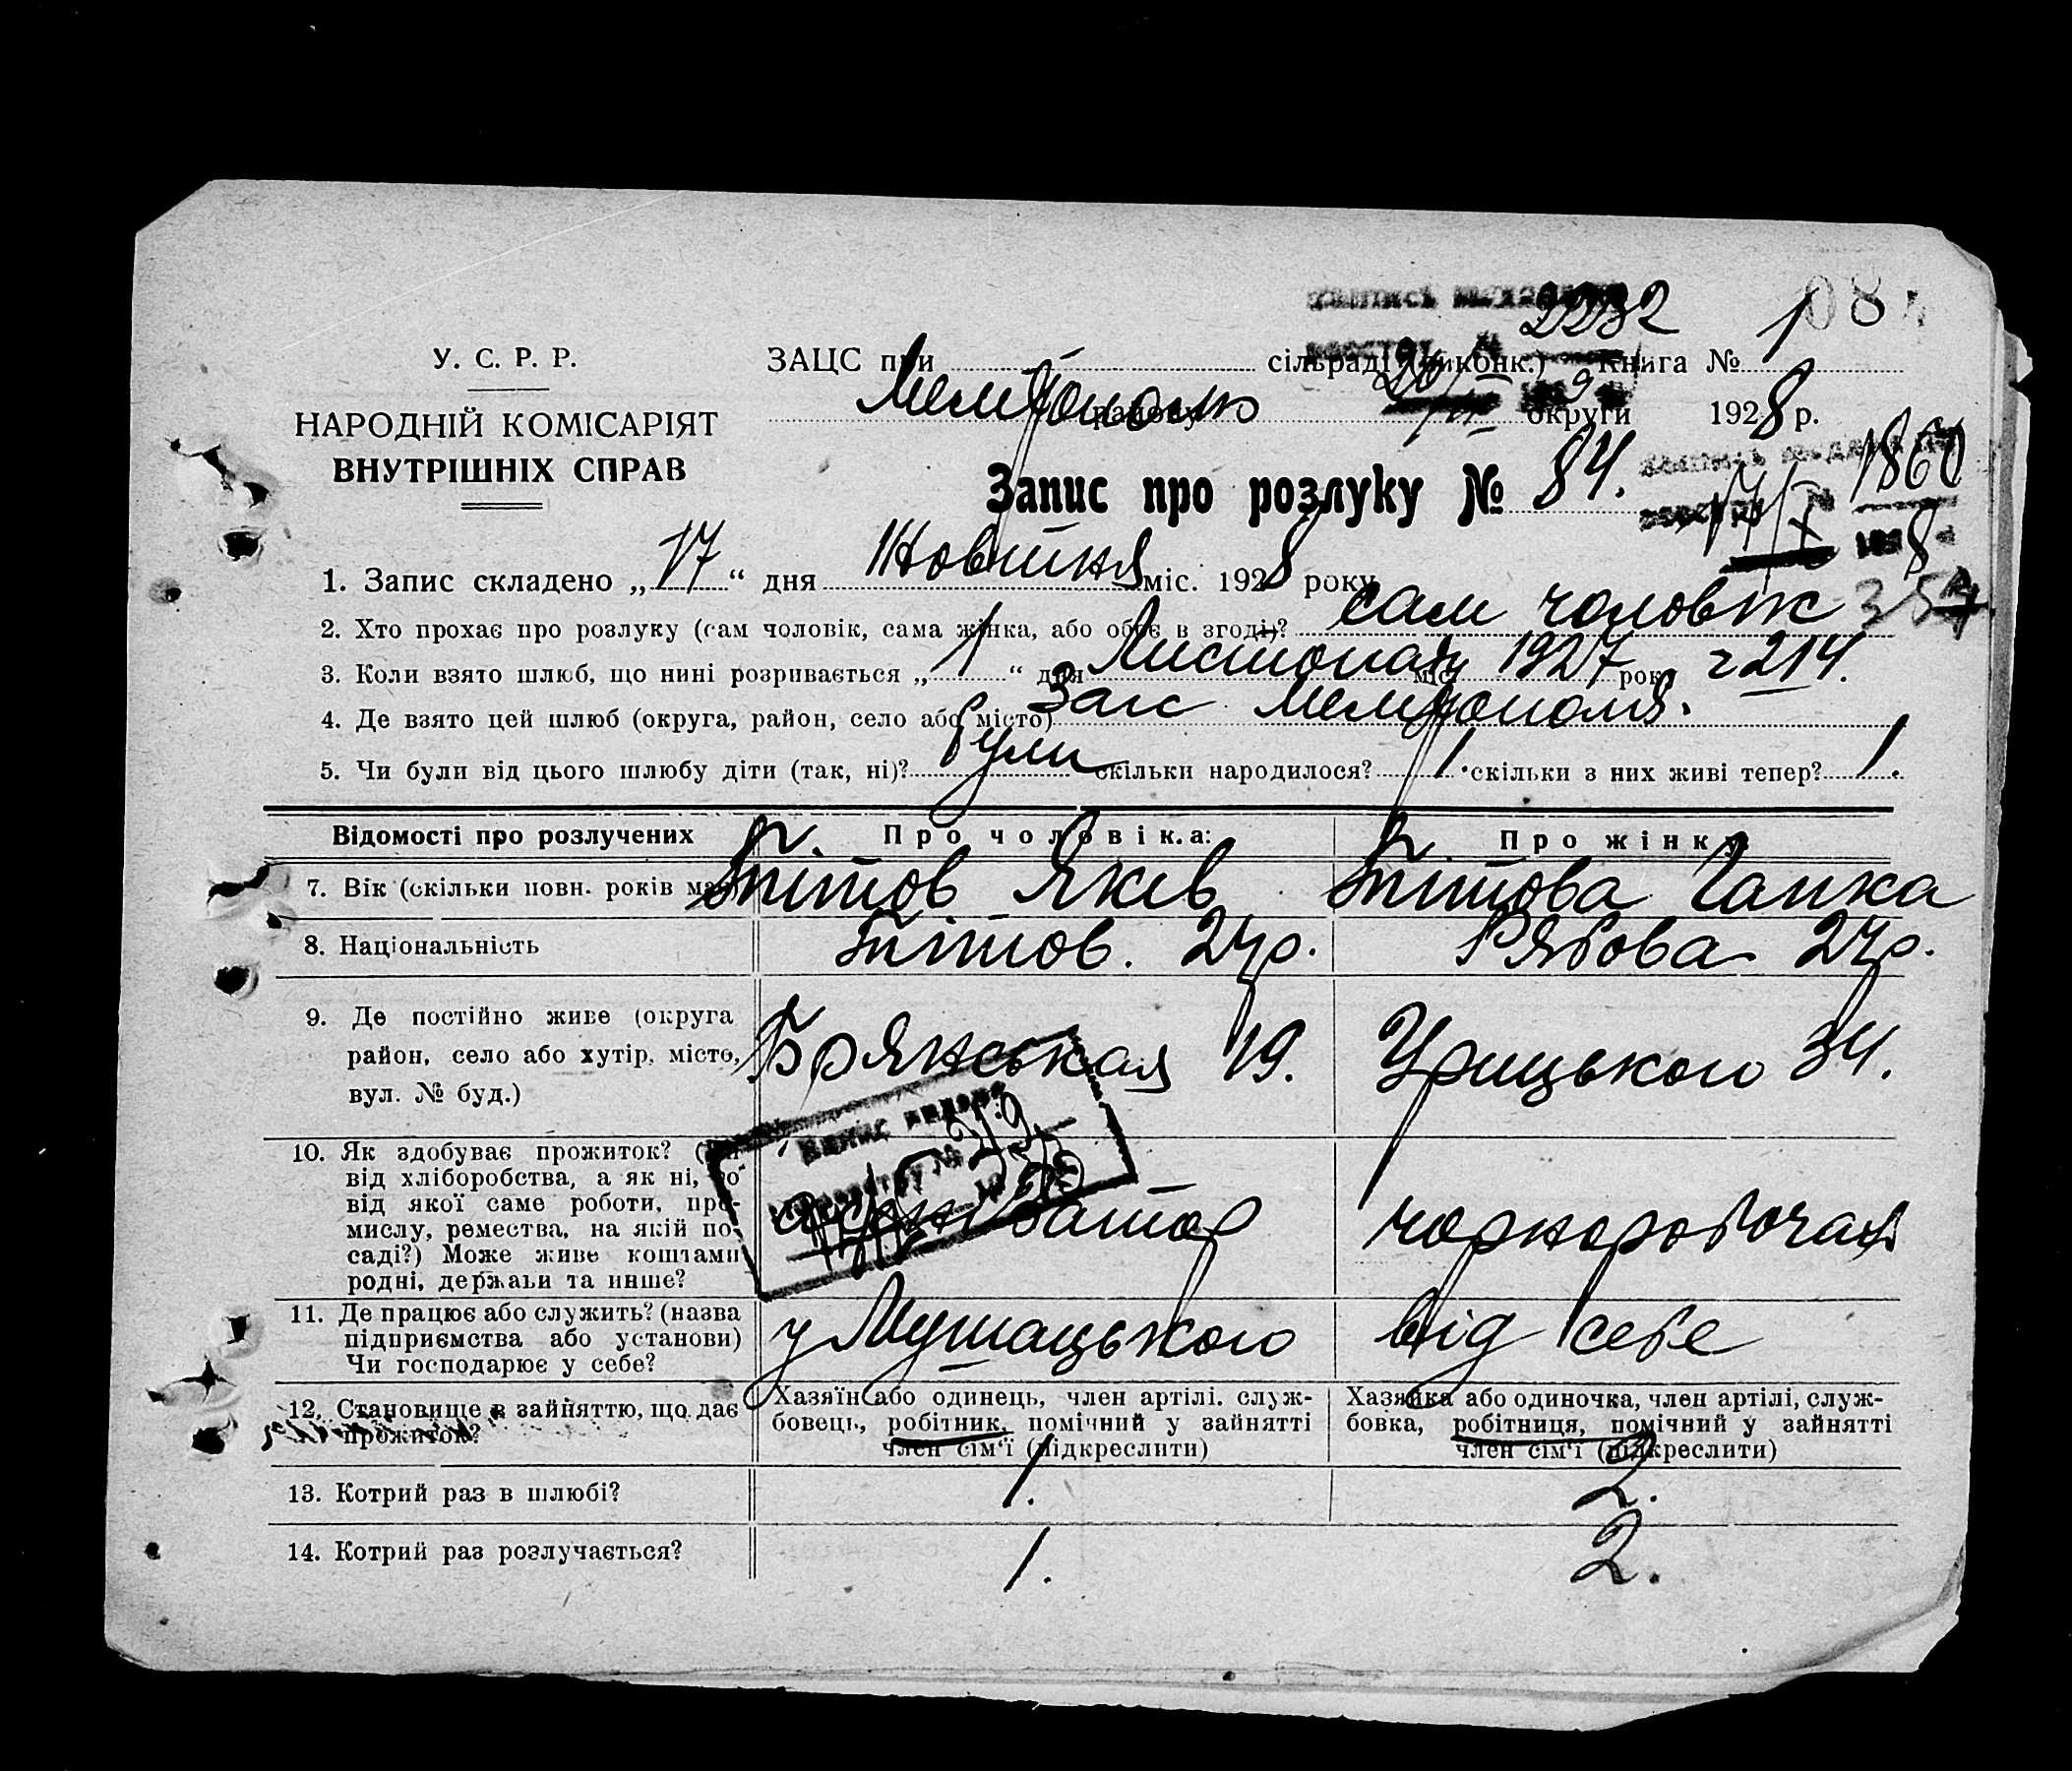 2232
084
У. С. Р. Р.
ЗАЦС при сільраді (виконк.) Книга № 1
Мелітополь району округи 1928 р.
НАРОДНІЙ КОМІСАРІЯТ
ВНУТРІШНІХ СПРАВ
Запис про розлуку № 84.
1860
17/X
1928
1. Запис складено „17“ дня Жовтня міс. 1928 року
2. Хто прохає про розлуку (сам чоловік, сама жінка, або обоє в згоді)? сам чоловік
3. Коли взято шлюб, що нині розривається „1“ дня Листопада міс. 1927 року ч 214.
4. Де взято цей шлюб (округа, район, село або місто) Загс Мелітополя.
5. Чи були від цього шлюбу діти (так, ні)? були скільки народилося? 1. скільки з них живі тепер? 1.
Відомості про розлучених Про чоловіка: Про жінку
7. Вік (скільки повн. років має) Тітов Яків Тітова Гапка
8. Національність Тітов. 24 р. Рябова 24 р.
9. Де постійно живе (округа
район, село або хутір, місто,
вул. № буд.)
Брянськая 19. Урицького 34.
10. Як здобуває прожиток? (чи
від хліборобства, а як ні, то
від якої саме роботи, про-
мислу, ремества, на якій по-
саді?) Може живе коштами
родні, держави та инше?
чорноробочая
11. Де працює або служить? (назва
підприємства або установи)
Чи господарює у себе?
у від себе
12. Становище в зайняттю, що дає
прожиток?
Хазяїн або одинець, член артілі. служ-
бовець, робітник, помічний у зайнятті
член сім'ї (підкреслити)
Хазяйка або одиночка, член артілі, служ-
бовка, робітниця, помічний у зайнятті
член сім'ї (підкреслити)
13. Котрий раз в шлюбі? 1. 2.
14. Котрий раз розлучається? 1. 2.